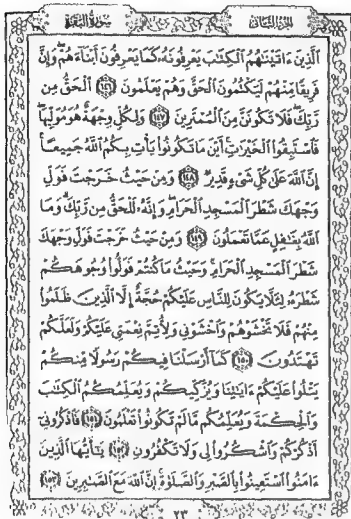 الجزء الثاني
سورة البقرة
الَّذِينَ ءَاتَيْنَٰهُمُ الْكِتَٰبَ يَعْرِفُونَهُۥ كَمَا يَعْرِفُونَ أَبْنَآءَهُمْ ۖ وَإِنَّ
فَرِيقًا مِّنْهُمْ لَيَكْتُمُونَ الْحَقَّ وَهُمْ يَعْلَمُونَ ﴿١٤٦﴾ الْحَقُّ مِن
رَّبِّكَ ۖ فَلَا تَكُونَنَّ مِنَ الْمُمْتَرِينَ ﴿١٤٧﴾ وَلِكُلٍّ وِجْهَةٌ هُوَ مُوَلِّيهَا ۖ
فَاسْتَبِقُوا الْخَيْرَٰتِ ۚ أَيْنَ مَا تَكُونُوا يَأْتِ بِكُمُ اللَّهُ جَمِيعًا ۚ
إِنَّ اللَّهَ عَلَىٰ كُلِّ شَىْءٍ قَدِيرٌ ﴿١٤٨﴾ وَمِنْ حَيْثُ خَرَجْتَ فَوَلِّ
وَجْهَكَ شَطْرَ الْمَسْجِدِ الْحَرَامِ ۖ وَإِنَّهُۥ لَلْحَقُّ مِن رَّبِّكَ ۗ وَمَا
اللَّهُ بِغَٰفِلٍ عَمَّا تَعْمَلُونَ ﴿١٤٩﴾ وَمِنْ حَيْثُ خَرَجْتَ فَوَلِّ وَجْهَكَ
شَطْرَ الْمَسْجِدِ الْحَرَامِ ۚ وَحَيْثُ مَا كُنتُمْ فَوَلُّوا وُجُوهَكُمْ
شَطْرَهُۥ لِئَلَّا يَكُونَ لِلنَّاسِ عَلَيْكُمْ حُجَّةٌ إِلَّا الَّذِينَ ظَلَمُوا
مِنْهُمْ فَلَا تَخْشَوْهُمْ وَاخْشَوْنِى وَلِأُتِمَّ نِعْمَتِى عَلَيْكُمْ وَلَعَلَّكُمْ
تَهْتَدُونَ ﴿١٥٠﴾ كَمَآ أَرْسَلْنَا فِيكُمْ رَسُولًا مِّنكُمْ
يَتْلُوا عَلَيْكُمْ ءَايَٰتِنَا وَيُزَكِّيكُمْ وَيُعَلِّمُكُمُ الْكِتَٰبَ
وَالْحِكْمَةَ وَيُعَلِّمُكُم مَّا لَمْ تَكُونُوا تَعْلَمُونَ ﴿١٥١﴾ فَاذْكُرُونِىٓ
أَذْكُرْكُمْ وَاشْكُرُوا لِى وَلَا تَكْفُرُونِ ﴿١٥٢﴾ يَٰٓأَيُّهَا الَّذِينَ
ءَامَنُوا اسْتَعِينُوا بِالصَّبْرِ وَالصَّلَوٰةِ ۚ إِنَّ اللَّهَ مَعَ الصَّٰبِرِينَ ﴿١٥٣﴾
٢٣